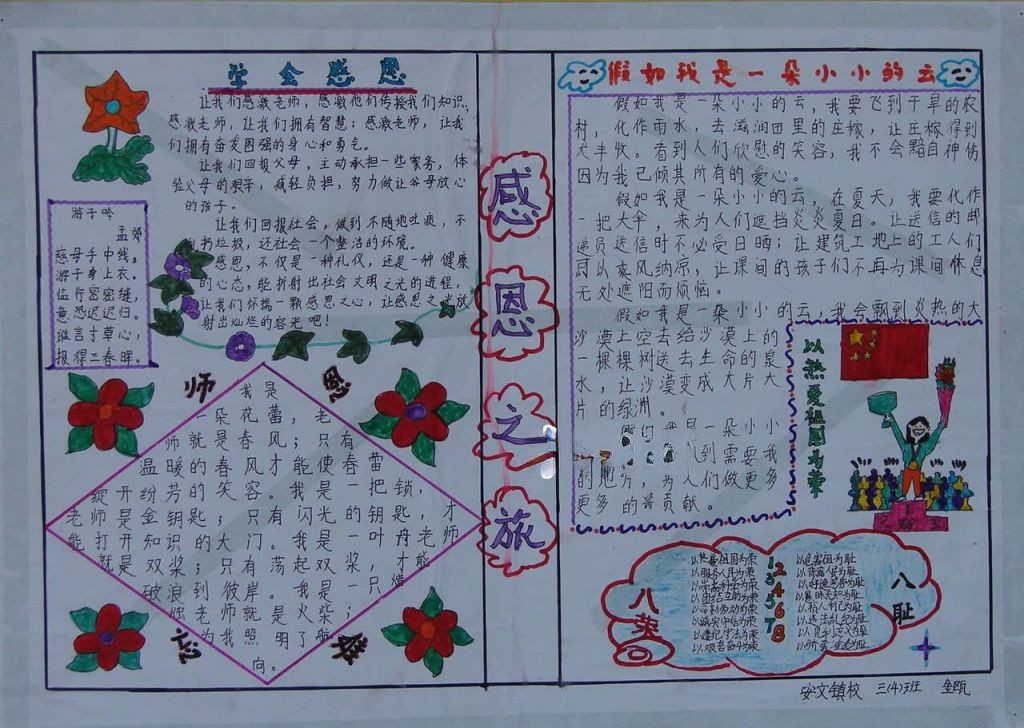 学会感恩
让我们感激老师，感激他们传授我们知识
感激老师，让我们拥有智慧；感激老师，让我
们拥有奋发图强的身心和勇气。
让我们回报父母，主动承担一些家务，体
验父母的艰辛，减轻负担，努力做让爷母放心
的孩子。
让我们回报社会，做到不随地吐痰，不
扔垃圾，还社会一个整洁的环境。
感恩，不仅是一种礼仪，还是一种健康
的心态，能折射出社会文明之光的进程，
让我们怀揣一颗感恩之心，让感恩之光放
射出灿烂的容光吧！
游子吟
孟郊
慈母手中线，
游子身上衣。
临行密密缝，
意恐迟迟归。
谁言寸草心，
报得三春晖。
师恩
我是
一朵花蕾，老
师就是春风；只有
温暖的春风才能使春蕾
绽开纷芳的笑容。我是一把锁，
老师是金钥匙；只有闪光的钥匙，才
能打开知识的大门。我是一叶舟老师
就是双桨；只有荡起双桨，才能
破浪到彼岸。我是一只蜡
烛老师就是火柴；
为我照明了航
向。
感恩之旅
假如我是一朵小小的云
假如我是一朵小小的云，我要飞到干旱的农
村，化作雨水，去滋润田里的庄稼，让庄稼得到
大丰收。看到人们欣慰的笑容，我不会黯自神伤
因为我已倾其所有的爱心。
假如我是一朵小小的云，在夏天，我要化作
一把大伞，来为人们遮挡炎炎夏日。让送信的邮
递员送信时不必受日晒；让建筑工地上的工人们
可以乘风纳凉，让课间的孩子们不再为课间休息
无处遮阳而烦恼。
假如我是一朵小小的云，我会飘到炎热的大
沙漠上空去给沙漠上的
一棵棵树送去生命的泉
水，让沙漠变成大片大
片的绿洲。
是一朵小小
到需要我
的地方，为人们做更多
更多的贡献。
以热爱祖国为荣
1
2
3
八荣
以热爱祖国为荣
以服务人民为荣
以团结互助为荣
以辛勤劳动为荣
以诚实守信为荣
以遵纪守法为荣
以艰苦奋斗为荣
1
2
3
4
5
6
7
8
以危害祖国为耻
以背离人民为耻
以愚昧无知为耻
以损人利己为耻
以违法乱纪为耻
以见利忘义为耻
八耻
安文镇校 三(4)班